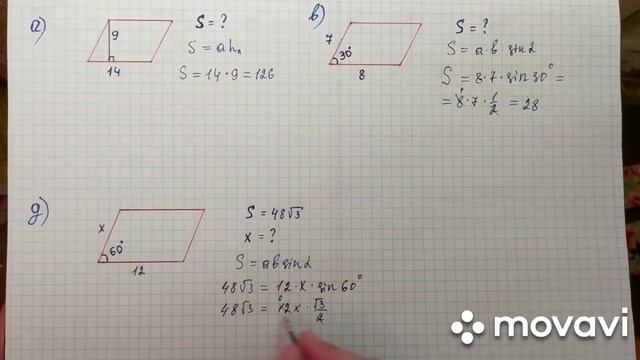 а)
9
14
S = ?
S = a hₐ
S = 14 · 9 = 126
в)
7
30°
8
S = ?
S = a · b · sin α
S = 8 · 7 · sin 30° =
= 8 · 7 · 1/2 = 28
д)
x
60°
12
S = 48√3
x = ?
S = ab sin α
48√3 = 12 · x · sin 60°
48√3 = 12x · √3/2
movavi